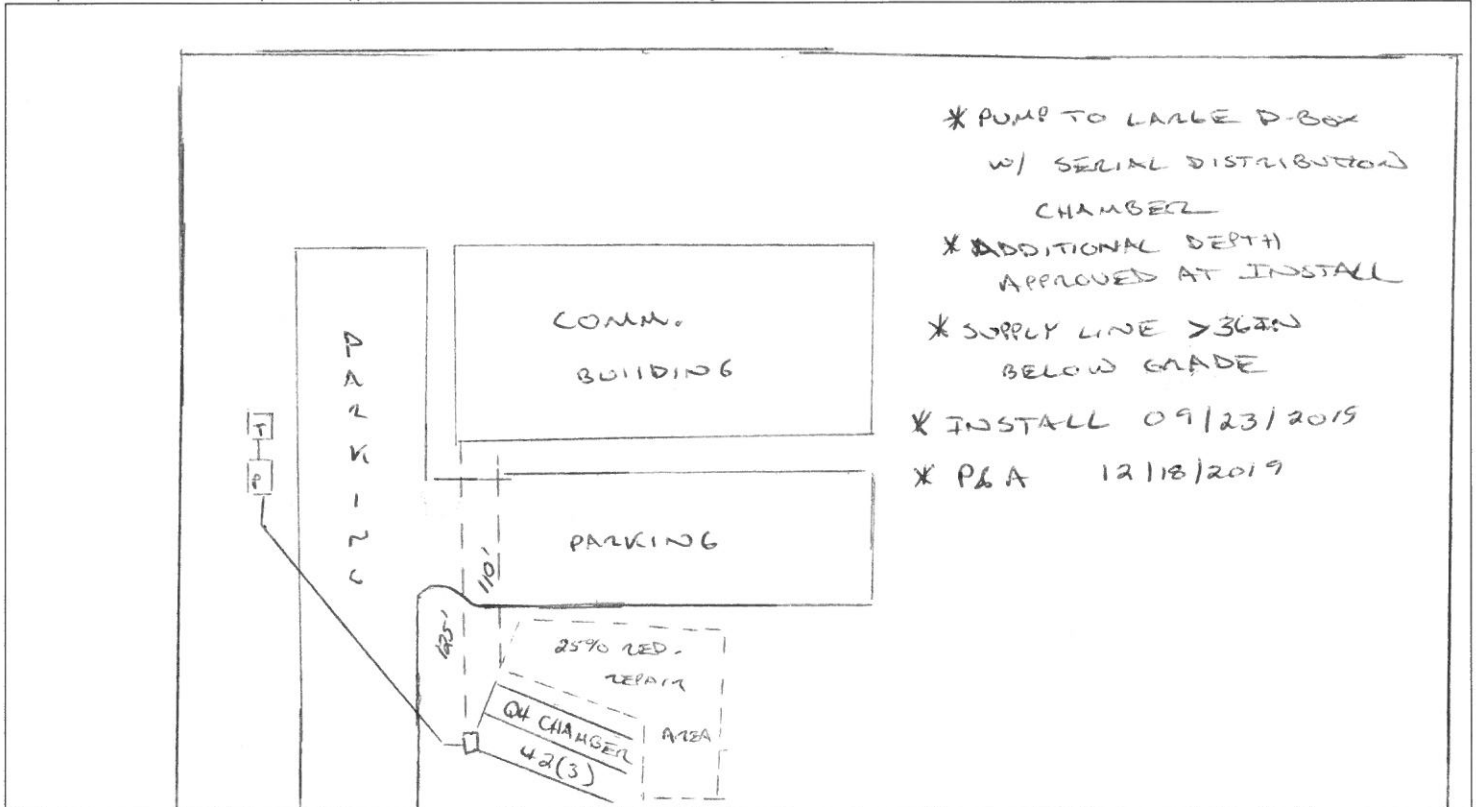 * PUMP TO LARGE D-BOX
W/ SERIAL DISTRIBUTION
CHAMBER
* ADDITIONAL DEPTH
APPROVED AT INSTALL
* SUPPLY LINE >36IN
BELOW GRADE
* INSTALL 09/23/2019
* P&A 12/18/2019
COMM.
BUILDING
PARKING
T
P
PARKING
110'
125'
25% RED.
REPAIR
AREA
Q4 CHAMBER
42(3)